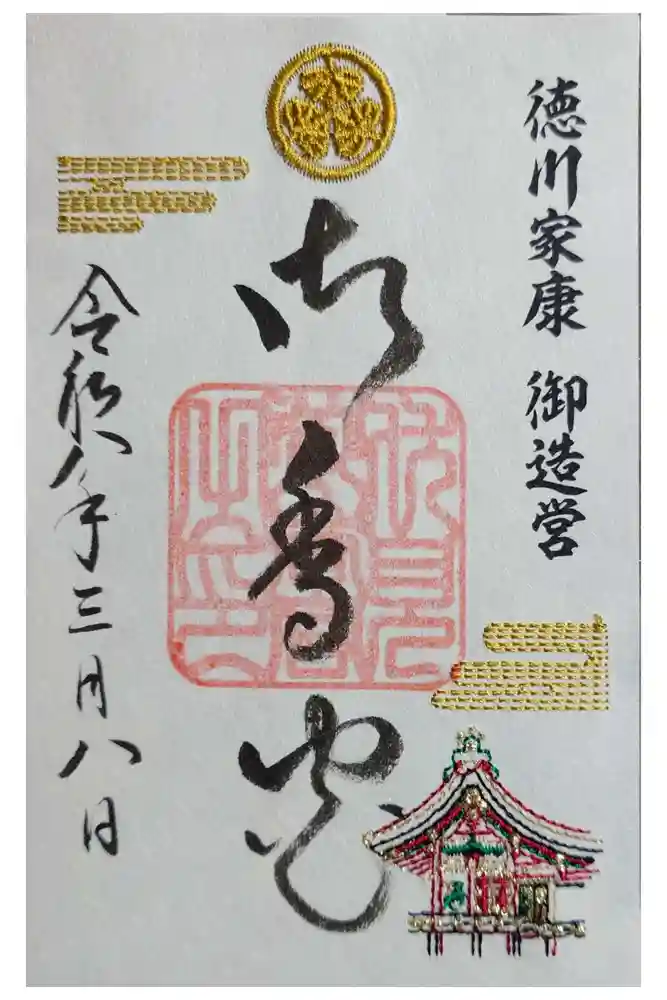 徳川家康 御造営
御香宮
令和八年三月八日